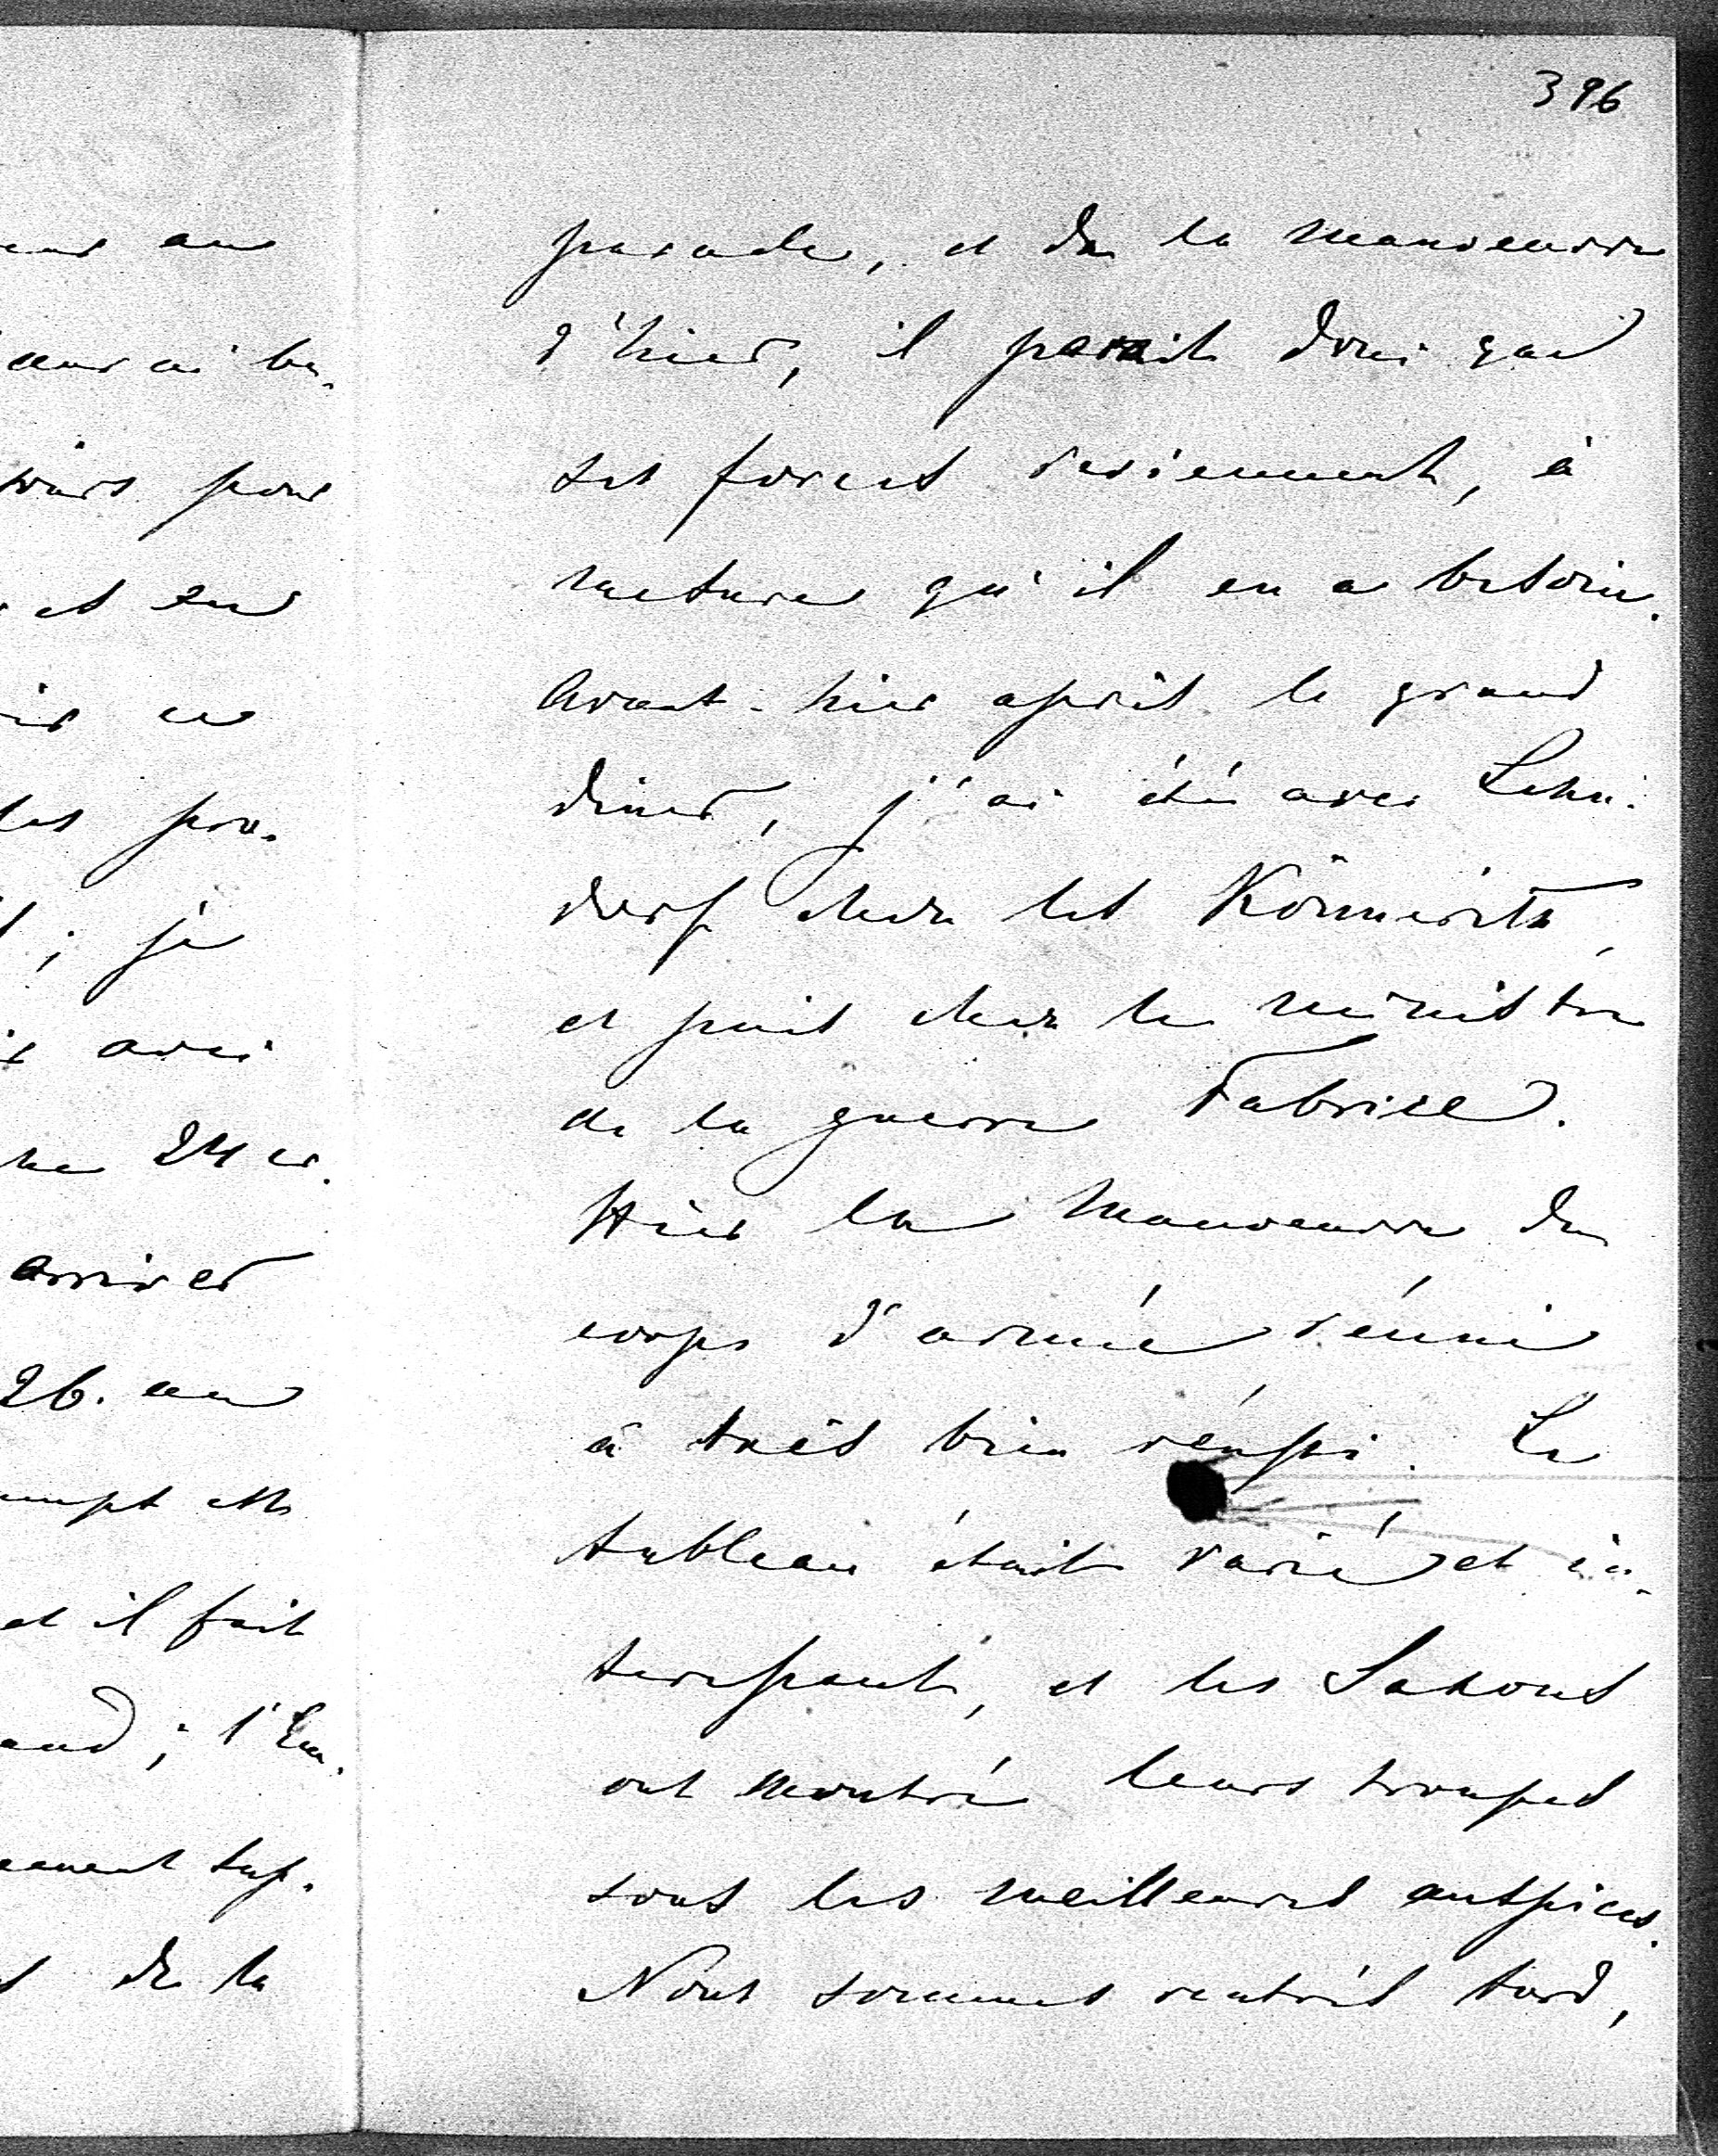 396
parade, et de la manoeuvre
d'hier, il parait donc que
ses forces reviennent, à
mesure qu'il en a besoin.
Avant-hier après le grand
diner, j'ai été avec Lehn-
dorf chez les Könneritz,
et puis chez le ministre
de la guerre Fabrice.
Hier la manoeuvre du
corps d'armée réuni
a très bien réussi. Le
tableau était varié et in-
teressant, et les Saxons
ont montré leurs troupes
sous les meilleures auspices.
Nous sommes rentrés tard,
au
pour
et
ce
les pro-
; je
avec
24 er.
arriver
26. au
et il fait
; l'Em-
sup-
de la